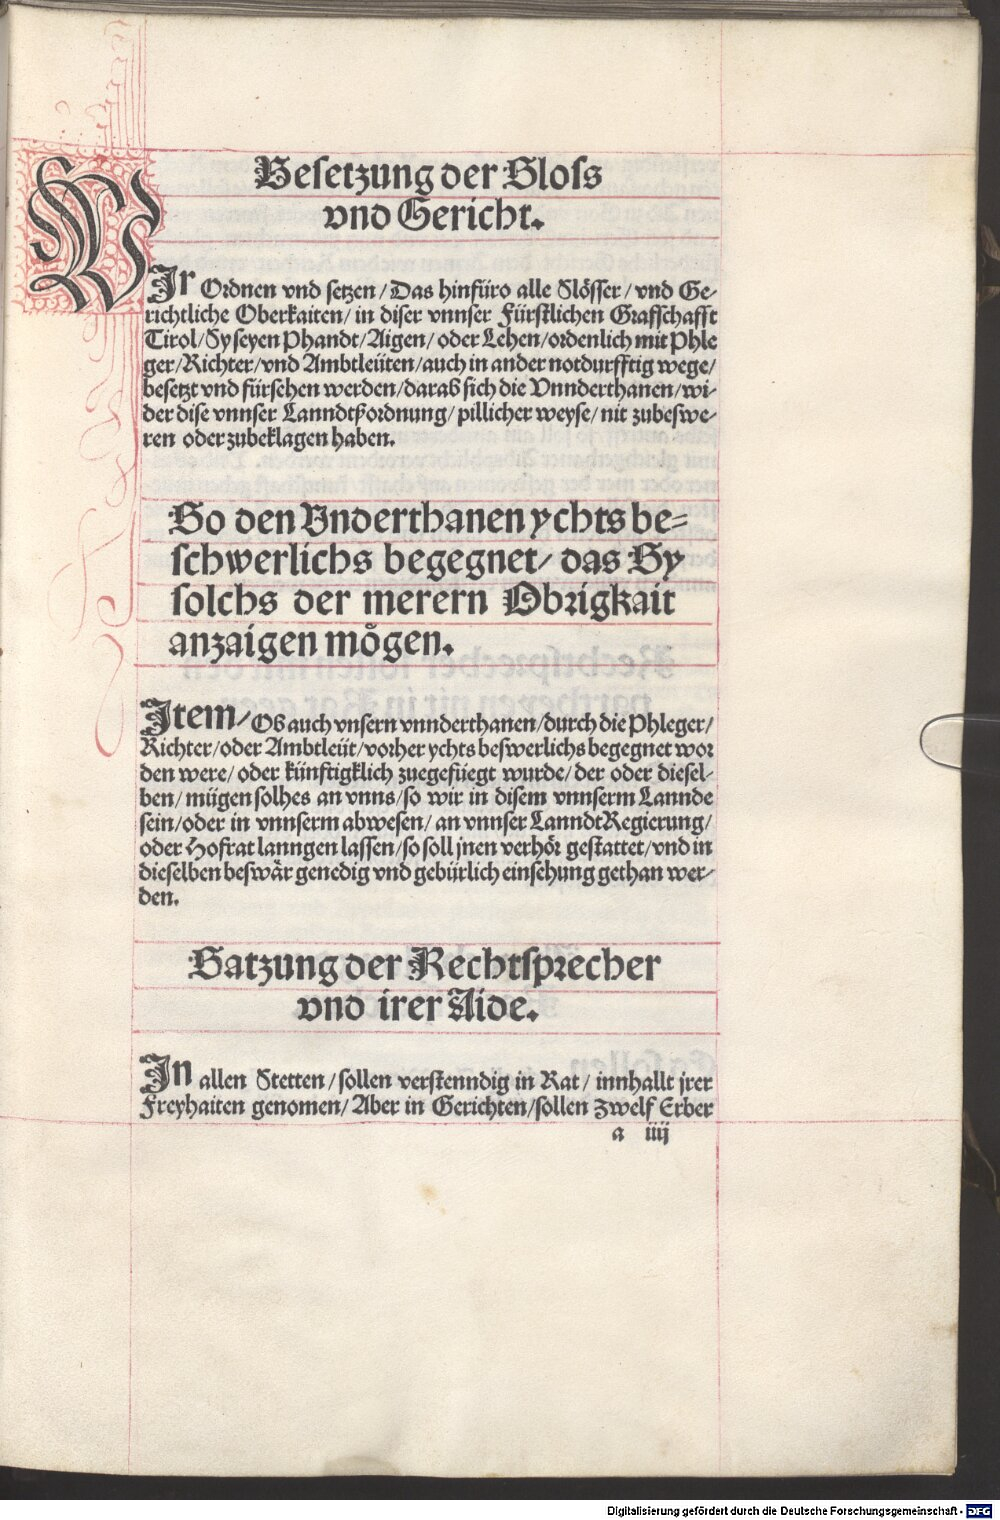 Besetzung der Sloss
vnd Gericht.
WIr Ordnen vnd setzen / Das hinfüro alle Slösser / vnd Ge-
richtliche Oberkaiten / in diser vnnser Fürstlichen Grafschafft
Tirol / Sy seyen Phandt / Aigen / oder Lehen / ordenlich mit Phle
ger / Richter / vnd Ambtleüten / auch in ander notdurfftig wege /
besetzt vnd fürsehen werden / darab sich die Vnnderthanen / wi-
der dise vnnser Lanndtßordnung / pillicher weyse / nit zubeswe-
ren oder zubeklagen haben.
So den Vnderthanen ychts be-
schwerlichs begegnet / das Sy
solchs der merern Obrigkait
anzaigen mögen.
Item / Ob auch vnsern vnnderthanen / durch die Phleger /
Richter / oder Ambtleüt / vorher ychts beswerlichs begegnet wor
den were / oder künftigklich zuegefüegt wurde / der oder diesel-
ben / mügen solhes an vnns / so wir in disem vnnserm Lannde
sein / oder in vnnserm abwesen / an vnnser LanndtRegierung /
oder Hofrat lanngen lassen / so soll jnen verhör gestattet / vnd in
dieselben beswär genedig vnd gebürlich einsehung gethan wer-
den.
Satzung der Rechtsprecher
vnd irer Aide.
In allen Stetten / sollen verstenndig in Rat / innhallt jrer
Freyhaiten genomen / Aber in Gerichten / sollen Zwelf Erber
a iiij
Digitalisierung gefördert durch die Deutsche Forschungsgemeinschaft - DFG